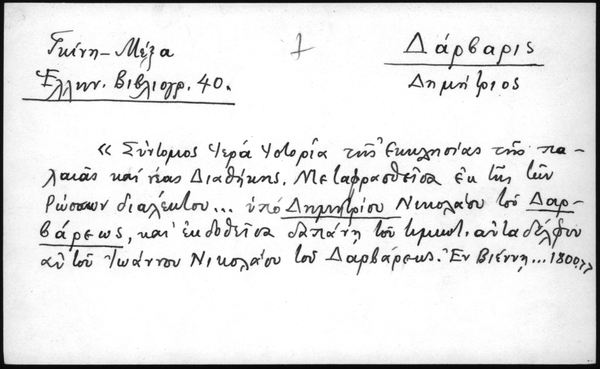 Γκίνη - Μέξα
Δάρβαρις
Ἑλλην. Βιβλιογρ. 40.
Δημήτριος
« Σύντομος Ἱερά Ἱστορία τῆς Ἐκκλησίας τῆς πα-
λαιᾶς καί νέας Διαθήκης. Μεταφρασθεῖσα ἐκ τῆς τῶν
Ρώσσων διαλέκτου... ὑπό Δημητρίου Νικολάου τοῦ Δαρ-
βάρεως, καί ἐκδοθεῖσα δαπάνῃ τοῦ τιμιωτ. αὐταδέλφου
αὐτοῦ Ἰωάννου Νικολάου τοῦ Δαρβάρεως. Ἐν Βιέννῃ... 1800.»